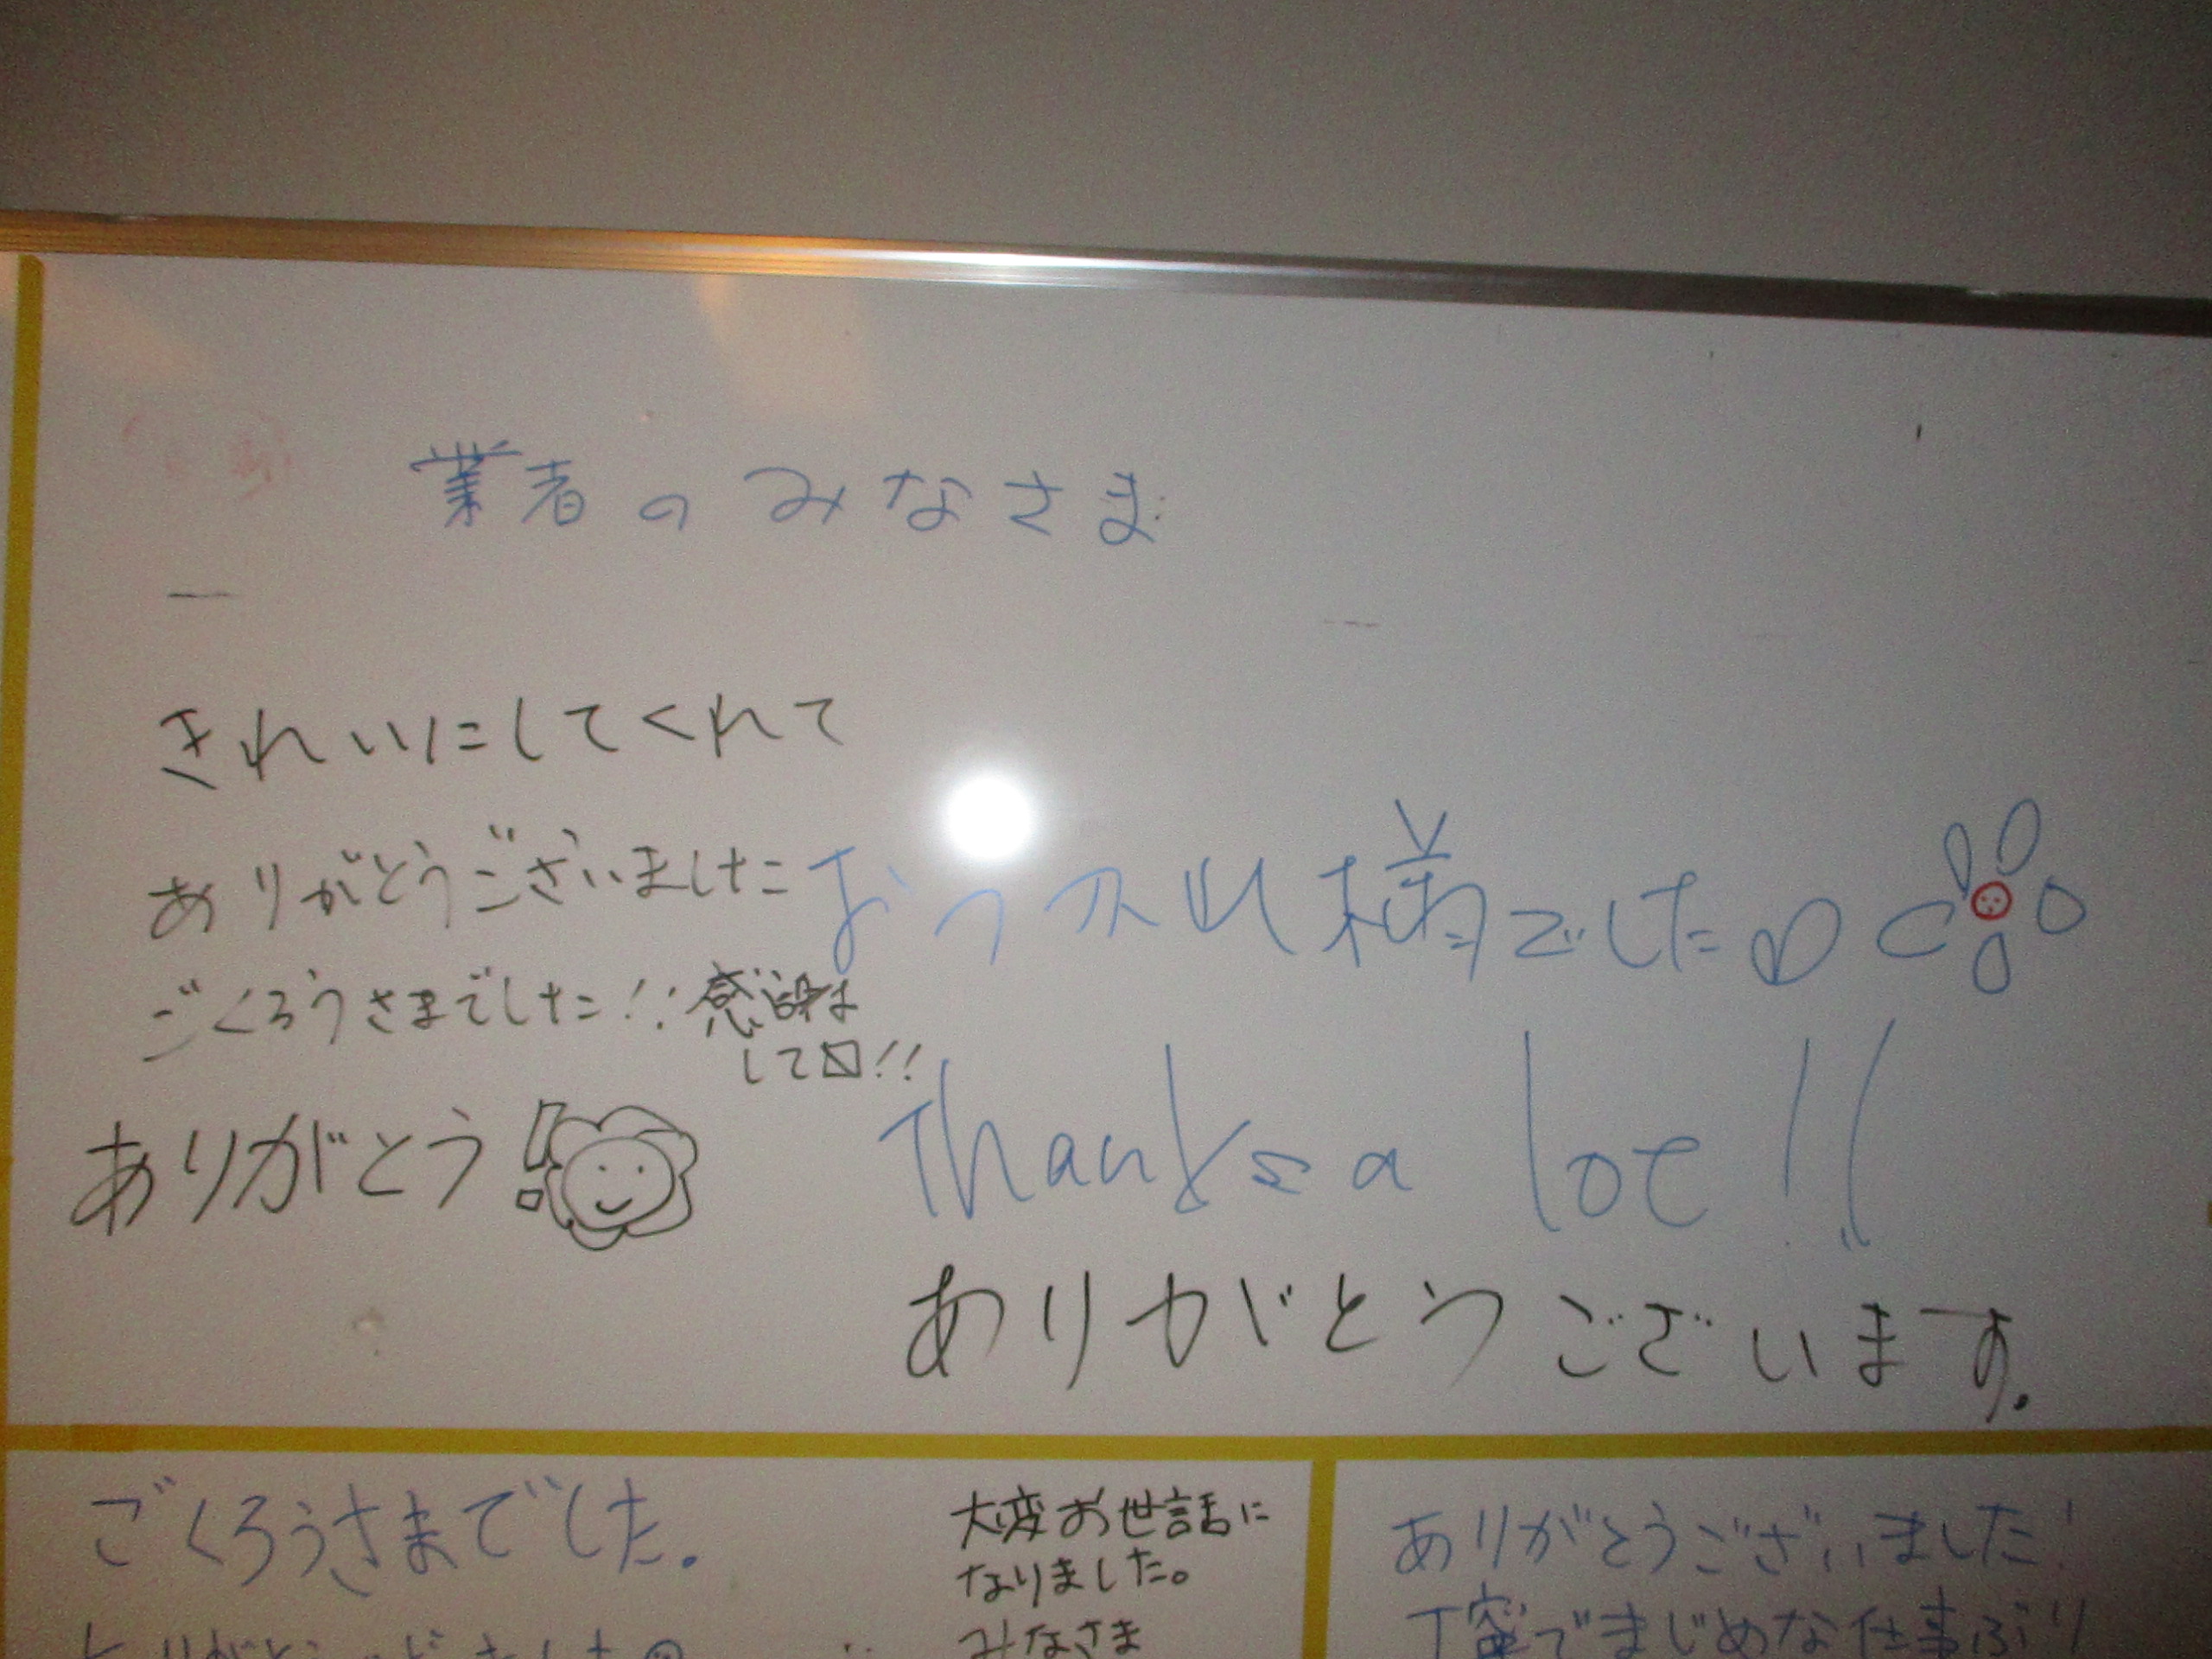 業者のみなさま
きれいにしてくれて
ありがとうございました
ごくろうさまでした!!
して
!!
ありがとう
おつかれ様でした
Thanks a lot!!
ありがとうございます。
ごくろうさまでした。
大変お世話に
なりました。
みなさま
ありがとうございました!
丁寧でまじめな仕事ぶり